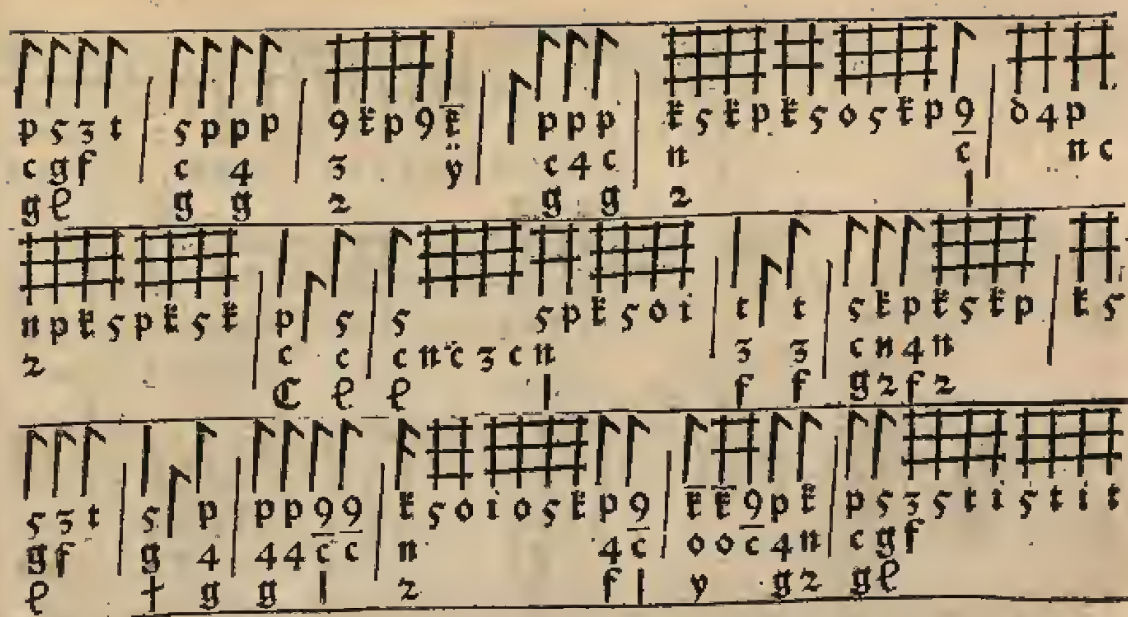 p 5 3 t 5 p p p 9 k p 9 k̄ p p p k 5 k p k 5 o 5 k p 9 d 4 p
c g f c 4 3 ÿ c 4 c n c n c
g e g g 2 g g 2 |
n p k 5 p k 5 k p 5 5 5 p k 5 o i t t 5 k p k 5 k p k 5
2 c c c n c 3 c n 3 3 c n 4 n
C e e | f f g 2 f 2
5 3 t 5 p p p 9 9 k 5 o i o 5 k p 9 k̄ k̄ 9 p k p 5 3 5 t i 5 t i t
g f g 4 4 4 c c n 4 c o o c 4 n c g f
e † g g | 2 f | y g 2 g e